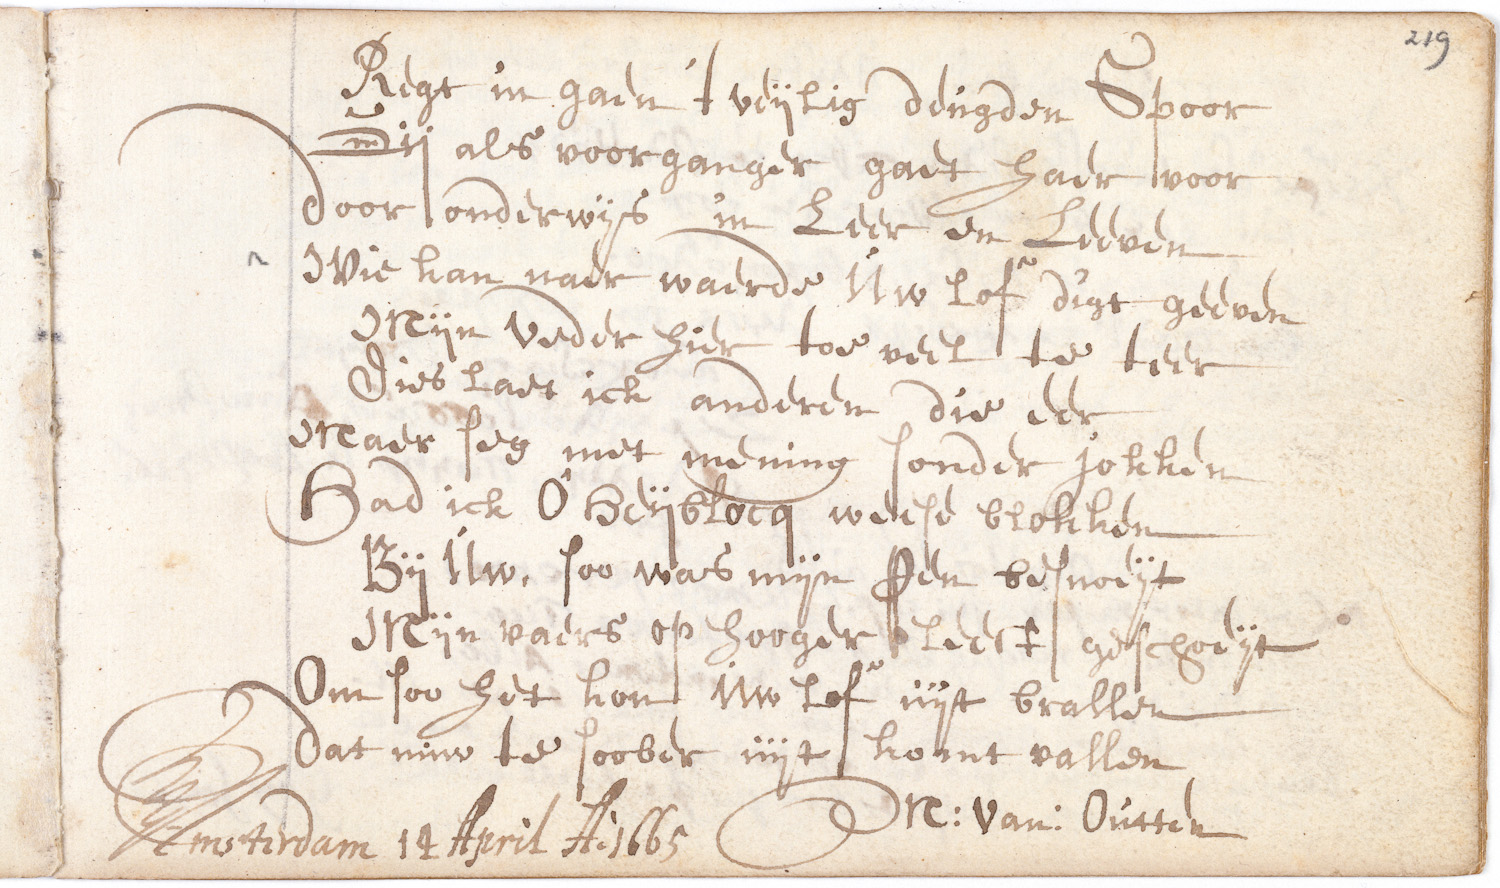 219
Regt in gaen 't veijlig deugden Spoor
Gij als voorganger gaet haer voor
door onderwijs in Leer en Leeven
Wie kan naer waerde Uw lof digt geeven
Mijn veder hier toe veel te teer
Dies laet ick anderen die eer
Maer seg met mening sonder jokken
Had ick O Heijblocq weese blokken
Bij Uw, soo was mijn Pen besnoeijt
Mijn vaers op hooger leest geschoeijt
Om soo het kon Uw lof uijt brallen
Dat nuw te soober uijt komt vallen
N: van: Outten
Amsterdam 14 April A: 1665